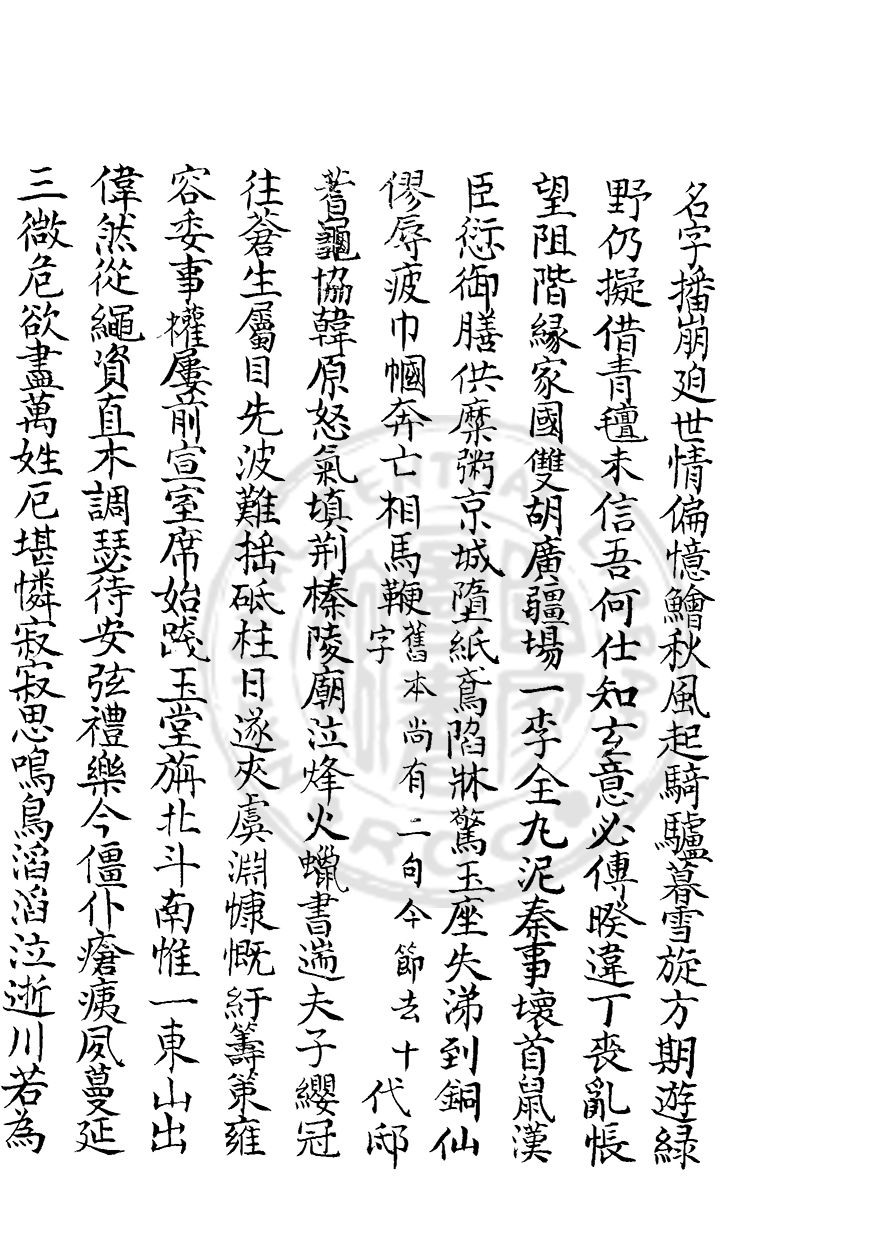 名字播崩廹世情偏憶鱠秋風起騎驢暮雪旋方期遊緑
野仍擬借青氊未信吾何仕知玄意必傳暌違丁喪亂悵
望阻階縁家國雙胡廣疆場一李全九泥秦事壞首鼠漢
臣愆御膳供糜粥京城墮紙鳶陷牀驚玉座失涕到銅仙
僇辱疲巾幗奔亡相馬鞭舊本尚有二句今節去十字代邸
蓍龜協韓原怒氣填荆榛陵廟泣烽火蠟書遄夫子纓冠
往蒼生屬目先波難揺砥柱日遂夾虞淵慷慨紆籌䇿雍
容委事權屢前宣室席始踐玉堂旃北斗南惟一東山出
偉然從繩資直木調瑟待安弦禮樂今僵仆瘡痍夙蔓延
三微危欲盡萬姓厄堪憐寂寂思鳴鳥滔滔泣逝川若為